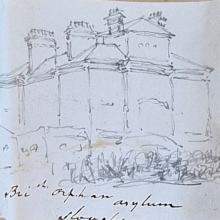 Brith Orphan asylum
Slough